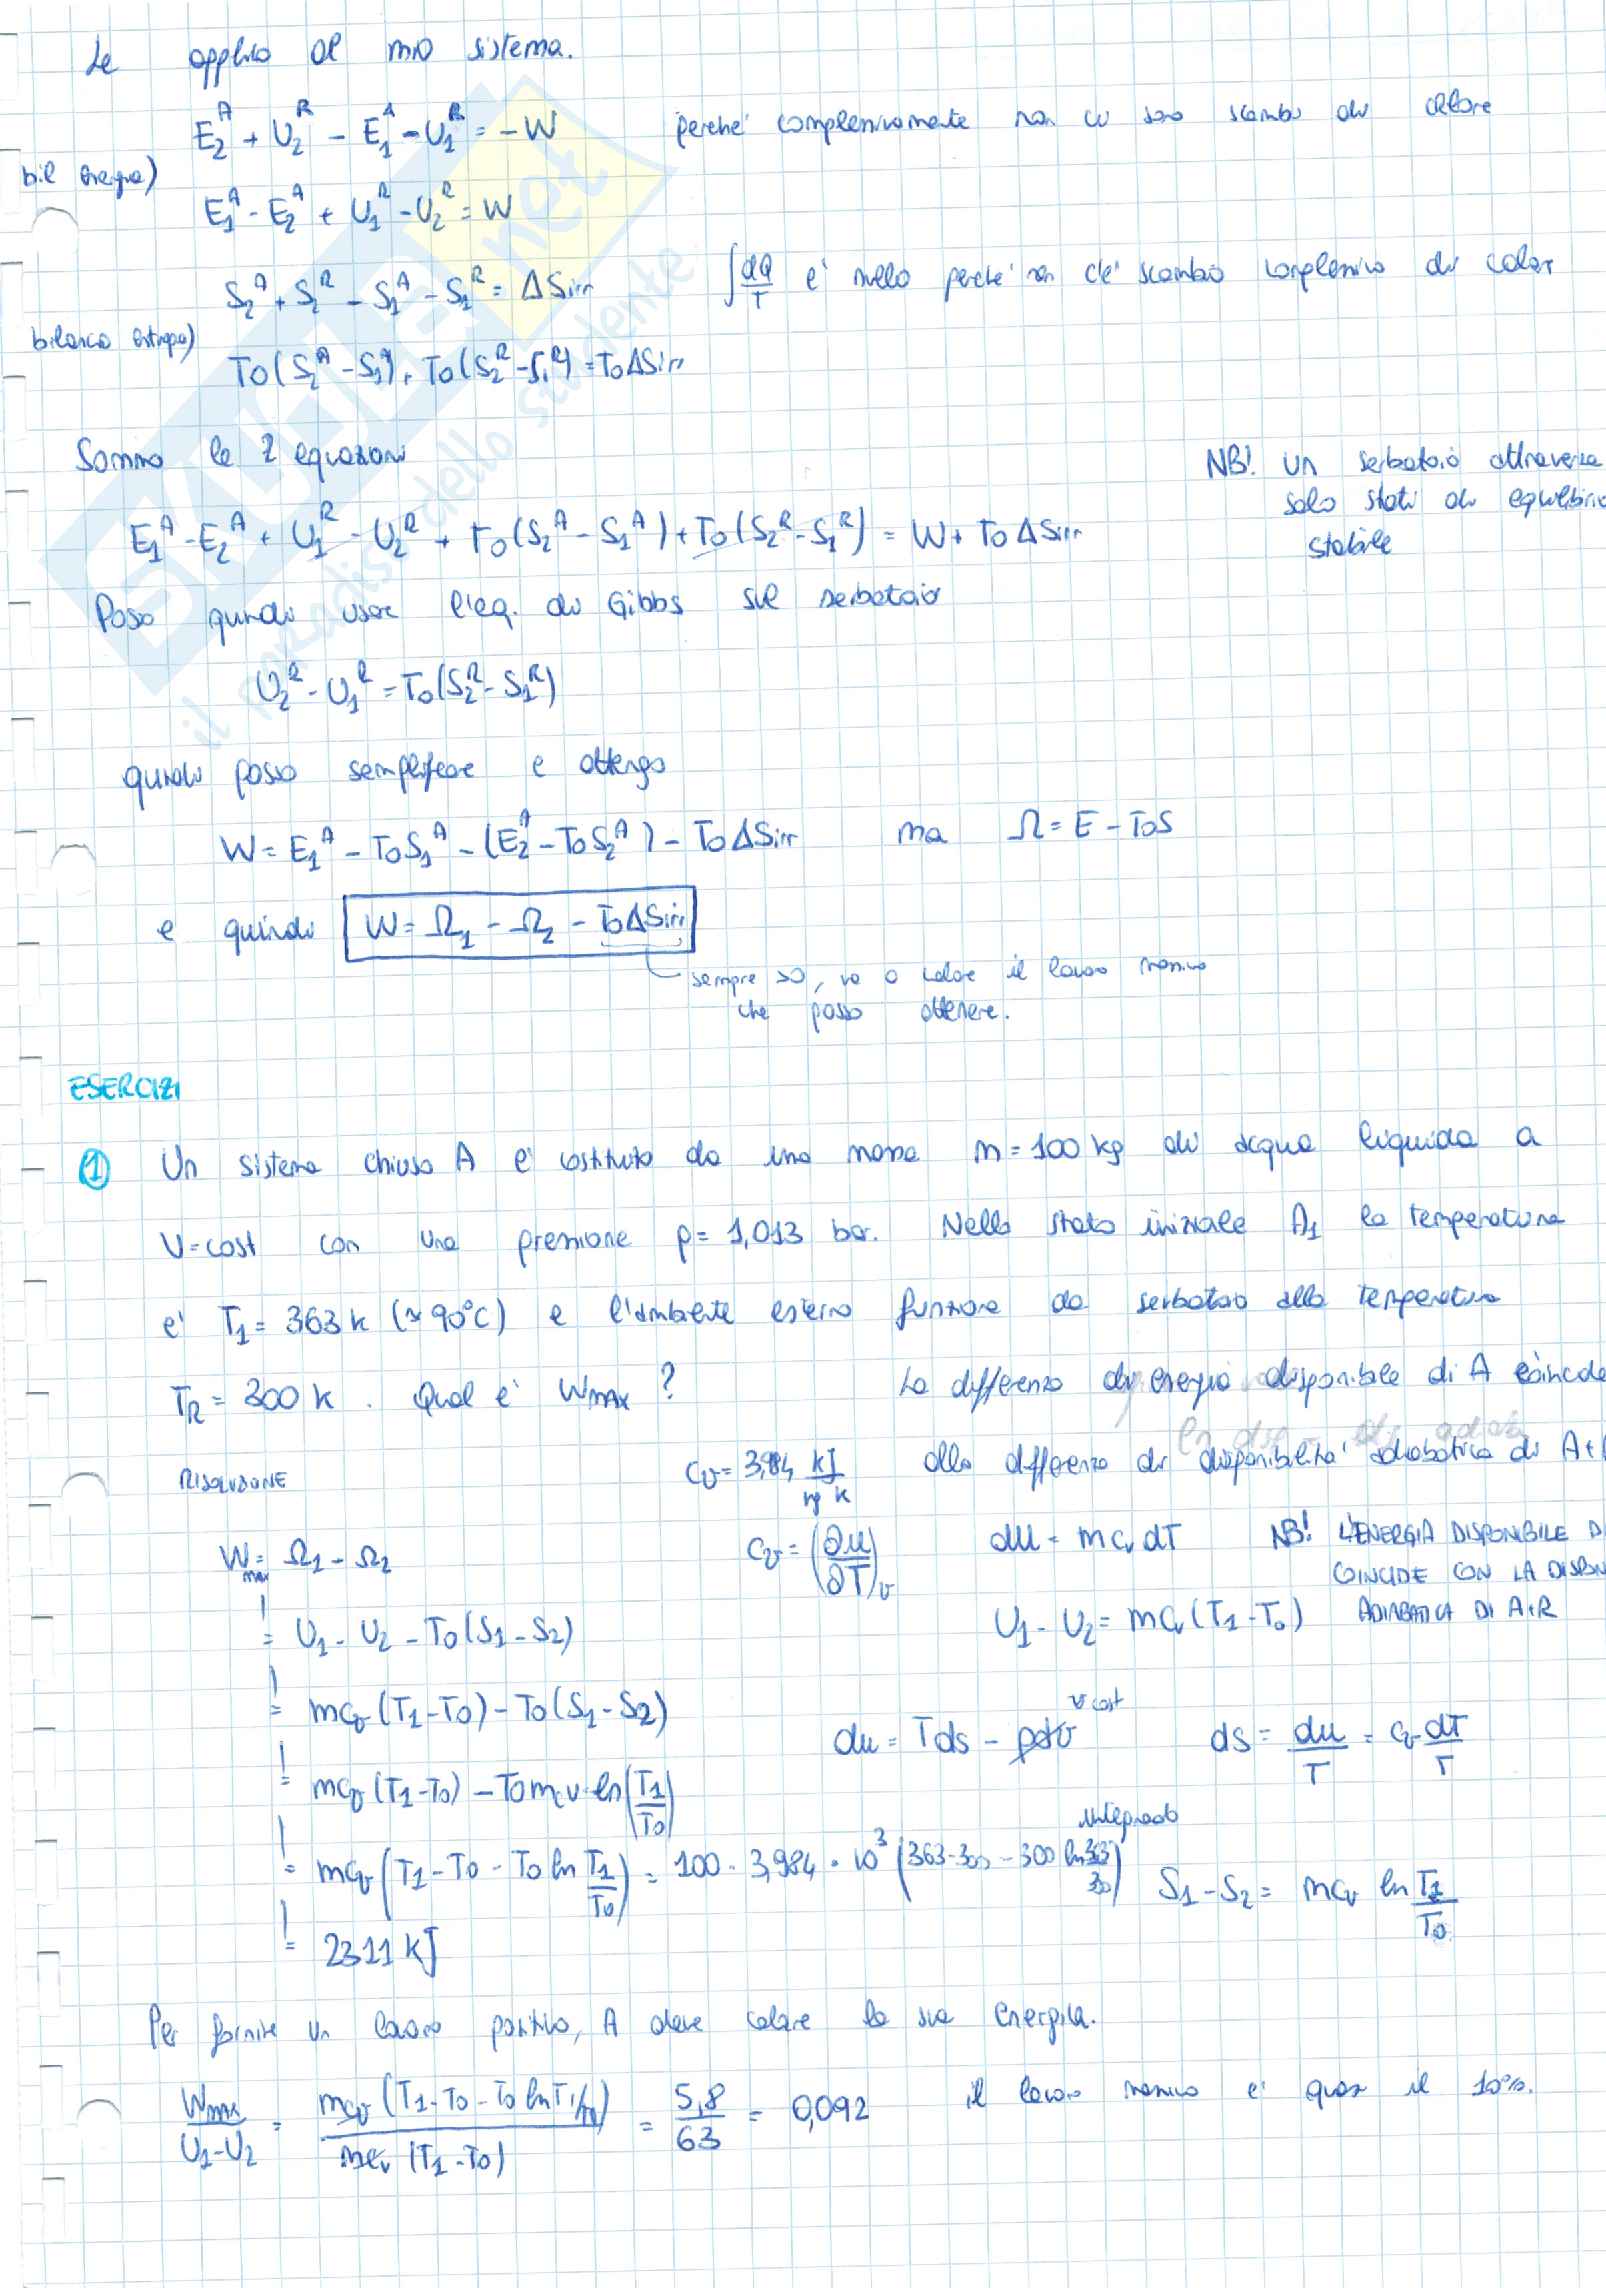 Le applico al mio sistema.
E₂ᴬ + U₂ᴿ - E₁ᴬ - U₁ᴿ = -W perche' complessivamente non ci sono scambi di calore
bil energia)
E₁ᴬ - E₂ᴬ + U₁ᴿ - U₂ᴿ = W
S₂ᴬ + S₂ᴿ - S₁ᴬ - S₁ᴿ = ΔSirr ∫dQ/T e' nullo perche' non c'e' scambio complessivo di calor
bilancio entropia)
To(S₂ᴬ - S₁ᴬ) + To(S₂ᴿ - S₁ᴿ) = ToΔSirr
Sommo le 2 equazioni
NB! un serbatoio attraversa
solo stati di equilibrio
stabile
E₁ᴬ - E₂ᴬ + U₁ᴿ - U₂ᴿ + To(S₂ᴬ - S₁ᴬ) + To(S₂ᴿ - S₁ᴿ) = W + ToΔSirr
Posso quindi usare l'eq. di Gibbs sul serbatoio
U₂ᴿ - U₁ᴿ = To(S₂ᴿ - S₁ᴿ)
quindi posso semplificare e ottengo
W = E₁ᴬ - ToS₁ᴬ - (E₂ᴬ - ToS₂ᴬ) - ToΔSirr ma Ω = E - ToS
e quindi W = Ω₁ - Ω₂ - ToΔSirr
sempre >0, va a calare il lavoro massimo
che posso ottenere.
ESERCIZI
1 Un sistema chiuso A e' costituito da una massa m = 100 kg di acqua liquida a
V=cost con una pressione p= 1,013 bar. Nello stato iniziale A₁ la temperatura
e' T₁ = 363 k (≈ 90°C) e l'ambiente esterno funziona da serbatoio alla temperatura
T_R = 300 k. Qual e' Wmax ?
La differenza di energia disponibile di A coincide
alla differenza di disponibilita' adiabatica di A+
RISOLUZIONE
cv = 3,984 kJ/kg k
Wmax = Ω₁ - Ω₂
cv = (∂u/∂T)v
du = m cv dT
NB! L'ENERGIA DISPONIBILE D
COINCIDE CON LA DISPON
ADIABATICA DI A+R
= U₁ - U₂ - To(S₁ - S₂)
U₁ - U₂ = mcv(T₁ - To)
= mcv(T₁ - To) - To(S₁ - S₂)
du = Tds - pdv v cost
ds = du/T = cv dT/T
= mcv(T₁ - To) - Tomcv·ln(T₁/To)
integrando
= mcv(T₁ - To - To ln T₁/To) = 100 · 3,984 · 10³ (363-300 - 300 ln 363/300)
S₁ - S₂ = mcv ln T₁/To
= 2311 kJ
Per fornire un lavoro positivo, A deve calare la sua energia.
Wmax/(U₁ - U₂) = mcv(T₁ - To - To ln T₁/To)/mcv(T₁ - To) = 5,8/63 = 0,092 il lavoro massimo e' quasi il 10%.